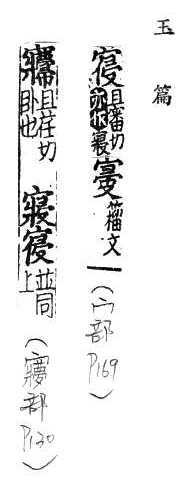 玉篇
寑 且審切亦作寢 籀文 (宀部 P169)
且荏切卧也 寢寑 並同上 (㝱部 P130)